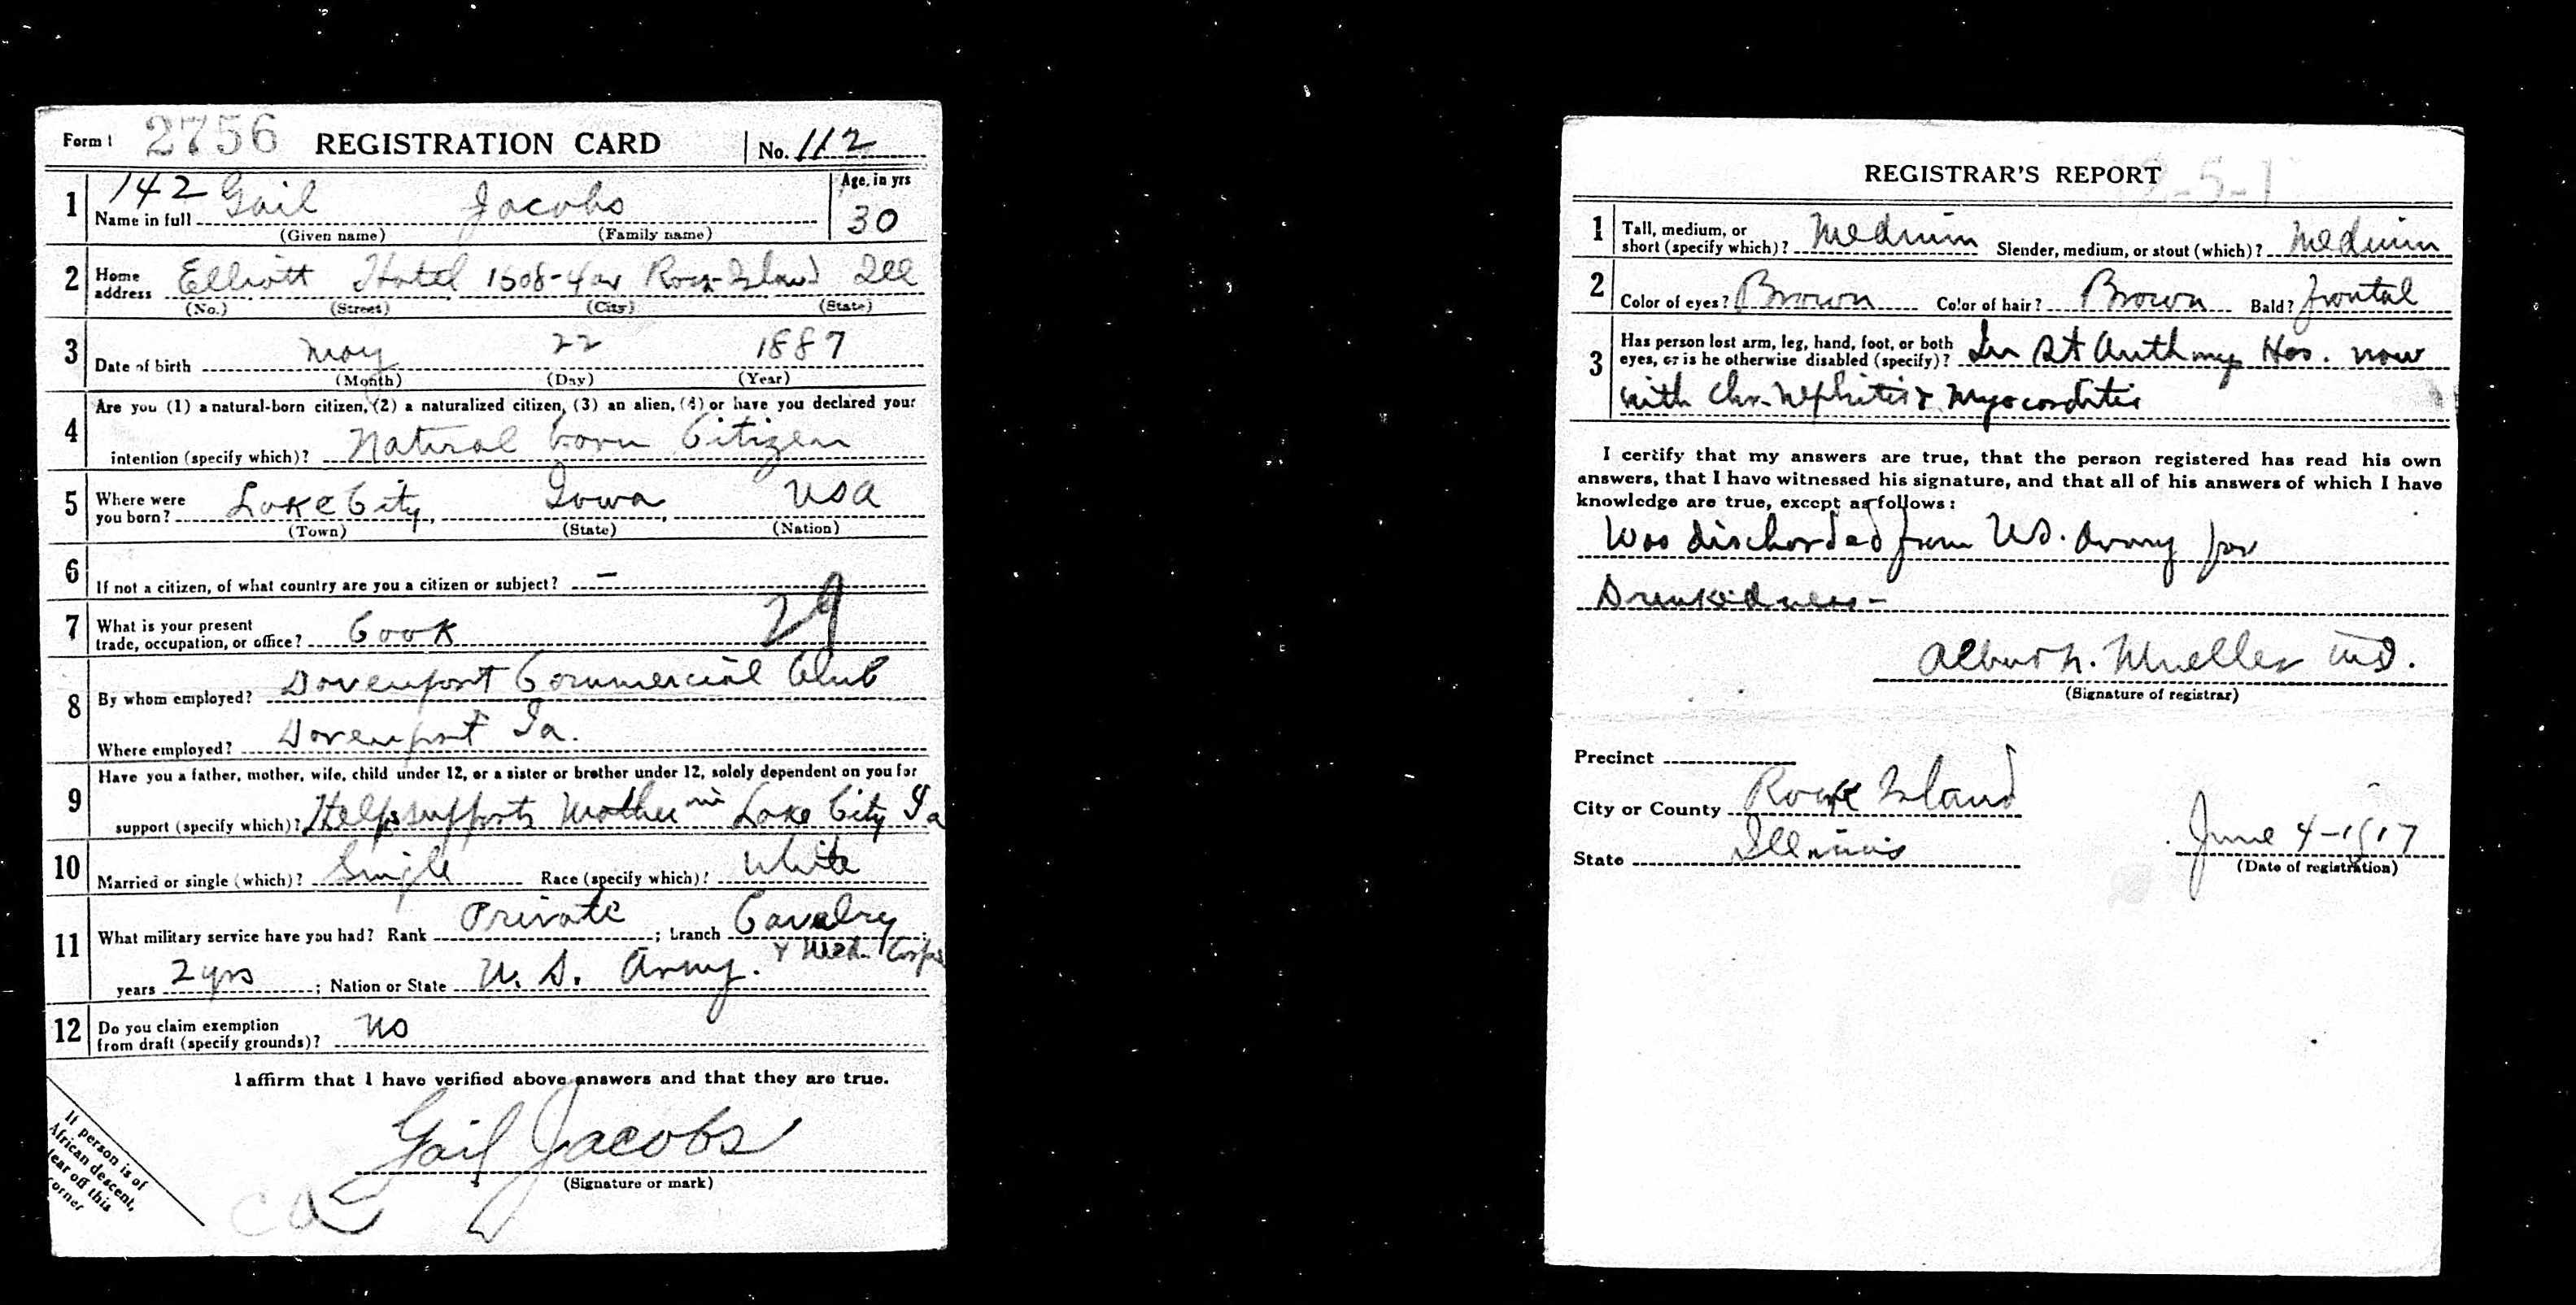 Form 1 2756 REGISTRATION CARD No. 112
1 142 Gail Jacobs Age, in yrs
Name in full 30
(Given name) (Family name)
2 Home address Elliott Hotel 1508-4av Rock Island Ill
(No.) (Street) (City) (State)
3 Date of birth May 22 1887
(Month) (Day) (Year)
4 Are you (1) a natural-born citizen, (2) a naturalized citizen, (3) an alien, (4) or have you declared your
intention (specify which)? Natural born Citizen
5 Where were you born? Lake City, Iowa, USA
(Town) (State) (Nation)
6 If not a citizen, of what country are you a citizen or subject? –
7 What is your present trade, occupation, or office? Cook 29
8 By whom employed? Davenport Commercial Club
Where employed? Davenport Ia.
9 Have you a father, mother, wife, child under 12, or a sister or brother under 12, solely dependent on you for
support (specify which)? Helps supports Mother in Lake City Ia
10 Married or single (which)? Single Race (specify which)? White
11 What military service have you had? Rank Private ; branch Cavalry
& Med. Corps
years 2 yrs ; Nation or State U. S. Army.
12 Do you claim exemption from draft (specify grounds)? No
I affirm that I have verified above answers and that they are true.
Gail Jacobs
(Signature or mark)
If person is of
African descent,
tear off this
corner
REGISTRAR'S REPORT
1 Tall, medium, or short (specify which)? Medium Slender, medium, or stout (which)? Medium
2 Color of eyes? Brown Color of hair? Brown Bald? frontal
3 Has person lost arm, leg, hand, foot, or both
eyes, or is he otherwise disabled (specify)? In St Anthony Hos. now
with Chr. Nephitis & Myocarditis
I certify that my answers are true, that the person registered has read his own
answers, that I have witnessed his signature, and that all of his answers of which I have
knowledge are true, except as follows:
Was discharded from U.S. Army for
Drunkedness -
Mueller M.D.
(Signature of registrar)
Precinct
City or County Rock Island
State Illinois
June 4-1917
(Date of registration)